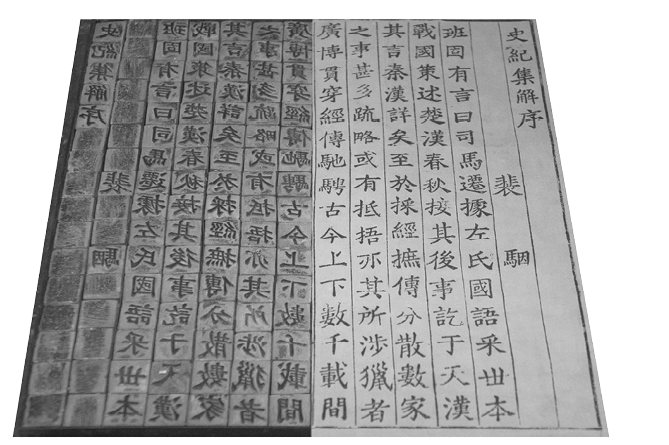 史紀集解序
裴駰
班固有言曰司馬遷據左氏國語采世本
戰國策述楚漢春秋接其後事訖于天漢
其言秦漢詳矣至於採經摭傳分散數家
之事甚多疏略或有抵捂亦其所涉獵者
廣博貫穿經傳馳騁古今上下數千載間
史紀集解序
裴駰
班固有言曰司馬遷據左氏國語采世本
戰國策述楚漢春秋接其後事訖于天漢
其言秦漢詳矣至於採經摭傳分散數家
之事甚多疏略或有抵捂亦其所涉獵者
廣博貫穿經傳馳騁古今上下數千載間